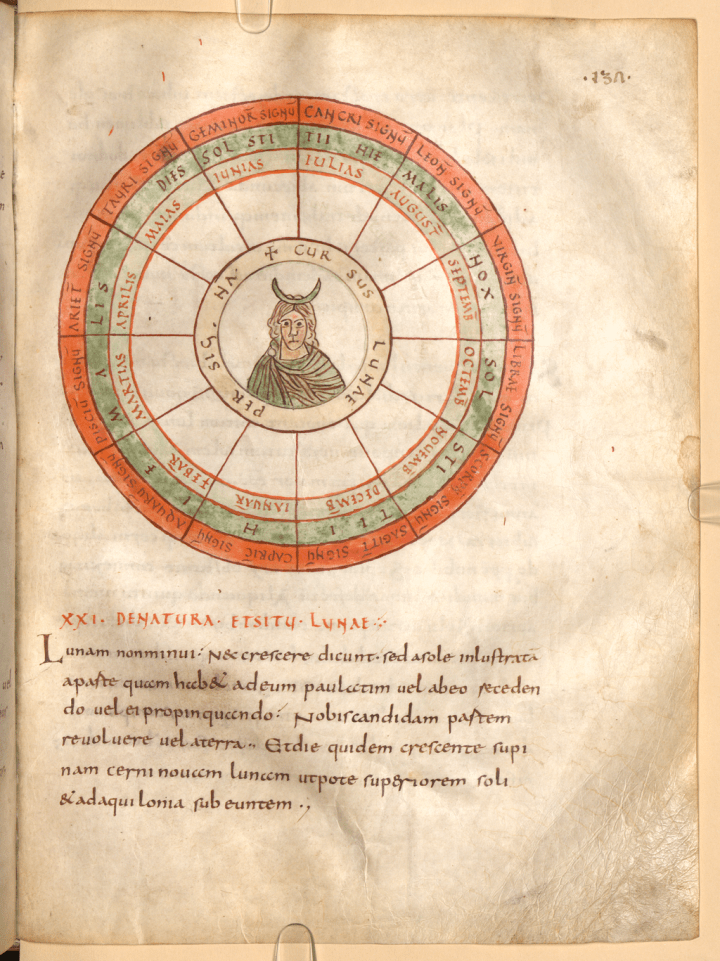 ·134·
CANCRI SIGNŪ
LEOÑ SIGNŪ
VIRGIÑ SIGNŪ
LIBRAE SIGNŪ
SCORPII SIGNŪ
SAGITT SIGNŪ
CAPRIC̄ SIGNŪ
AQUARII SIGNŪ
PISCIŪ SIGNŪ
ARIET̄ SIGNŪ
TAURI SIGNŪ
GEMINOR̄ SIGNŪ
DIES SOL STI TII HIE MALIS
NOX SOL STI
T I I
H
M A LIS
IULIAS
AUGUST̄
SEPTEMB̄
OCTEMB̄
NOUEMB̄
DECEMB̄
IANUAR̄
FEBAR̄
MARTIAS
APRILIS
MAIAS
IUNIAS
✝ CUR SUS LUNAE PER SIG. NA.
XXI. DENATURA. ETSITU. LUNAE
Lunam nonminui. Nec crescere dicunt. sed asole inlustratā
aparte quam hab& adeum paulatim uel abeo receden
do uel eipropinquando. Nobiscandidam partem
reuoluere uel aterra. Etdie quidem crescente supi
nam cerni nouam lunam utpote superiorem soli
& adaquilonia subeuntem .,